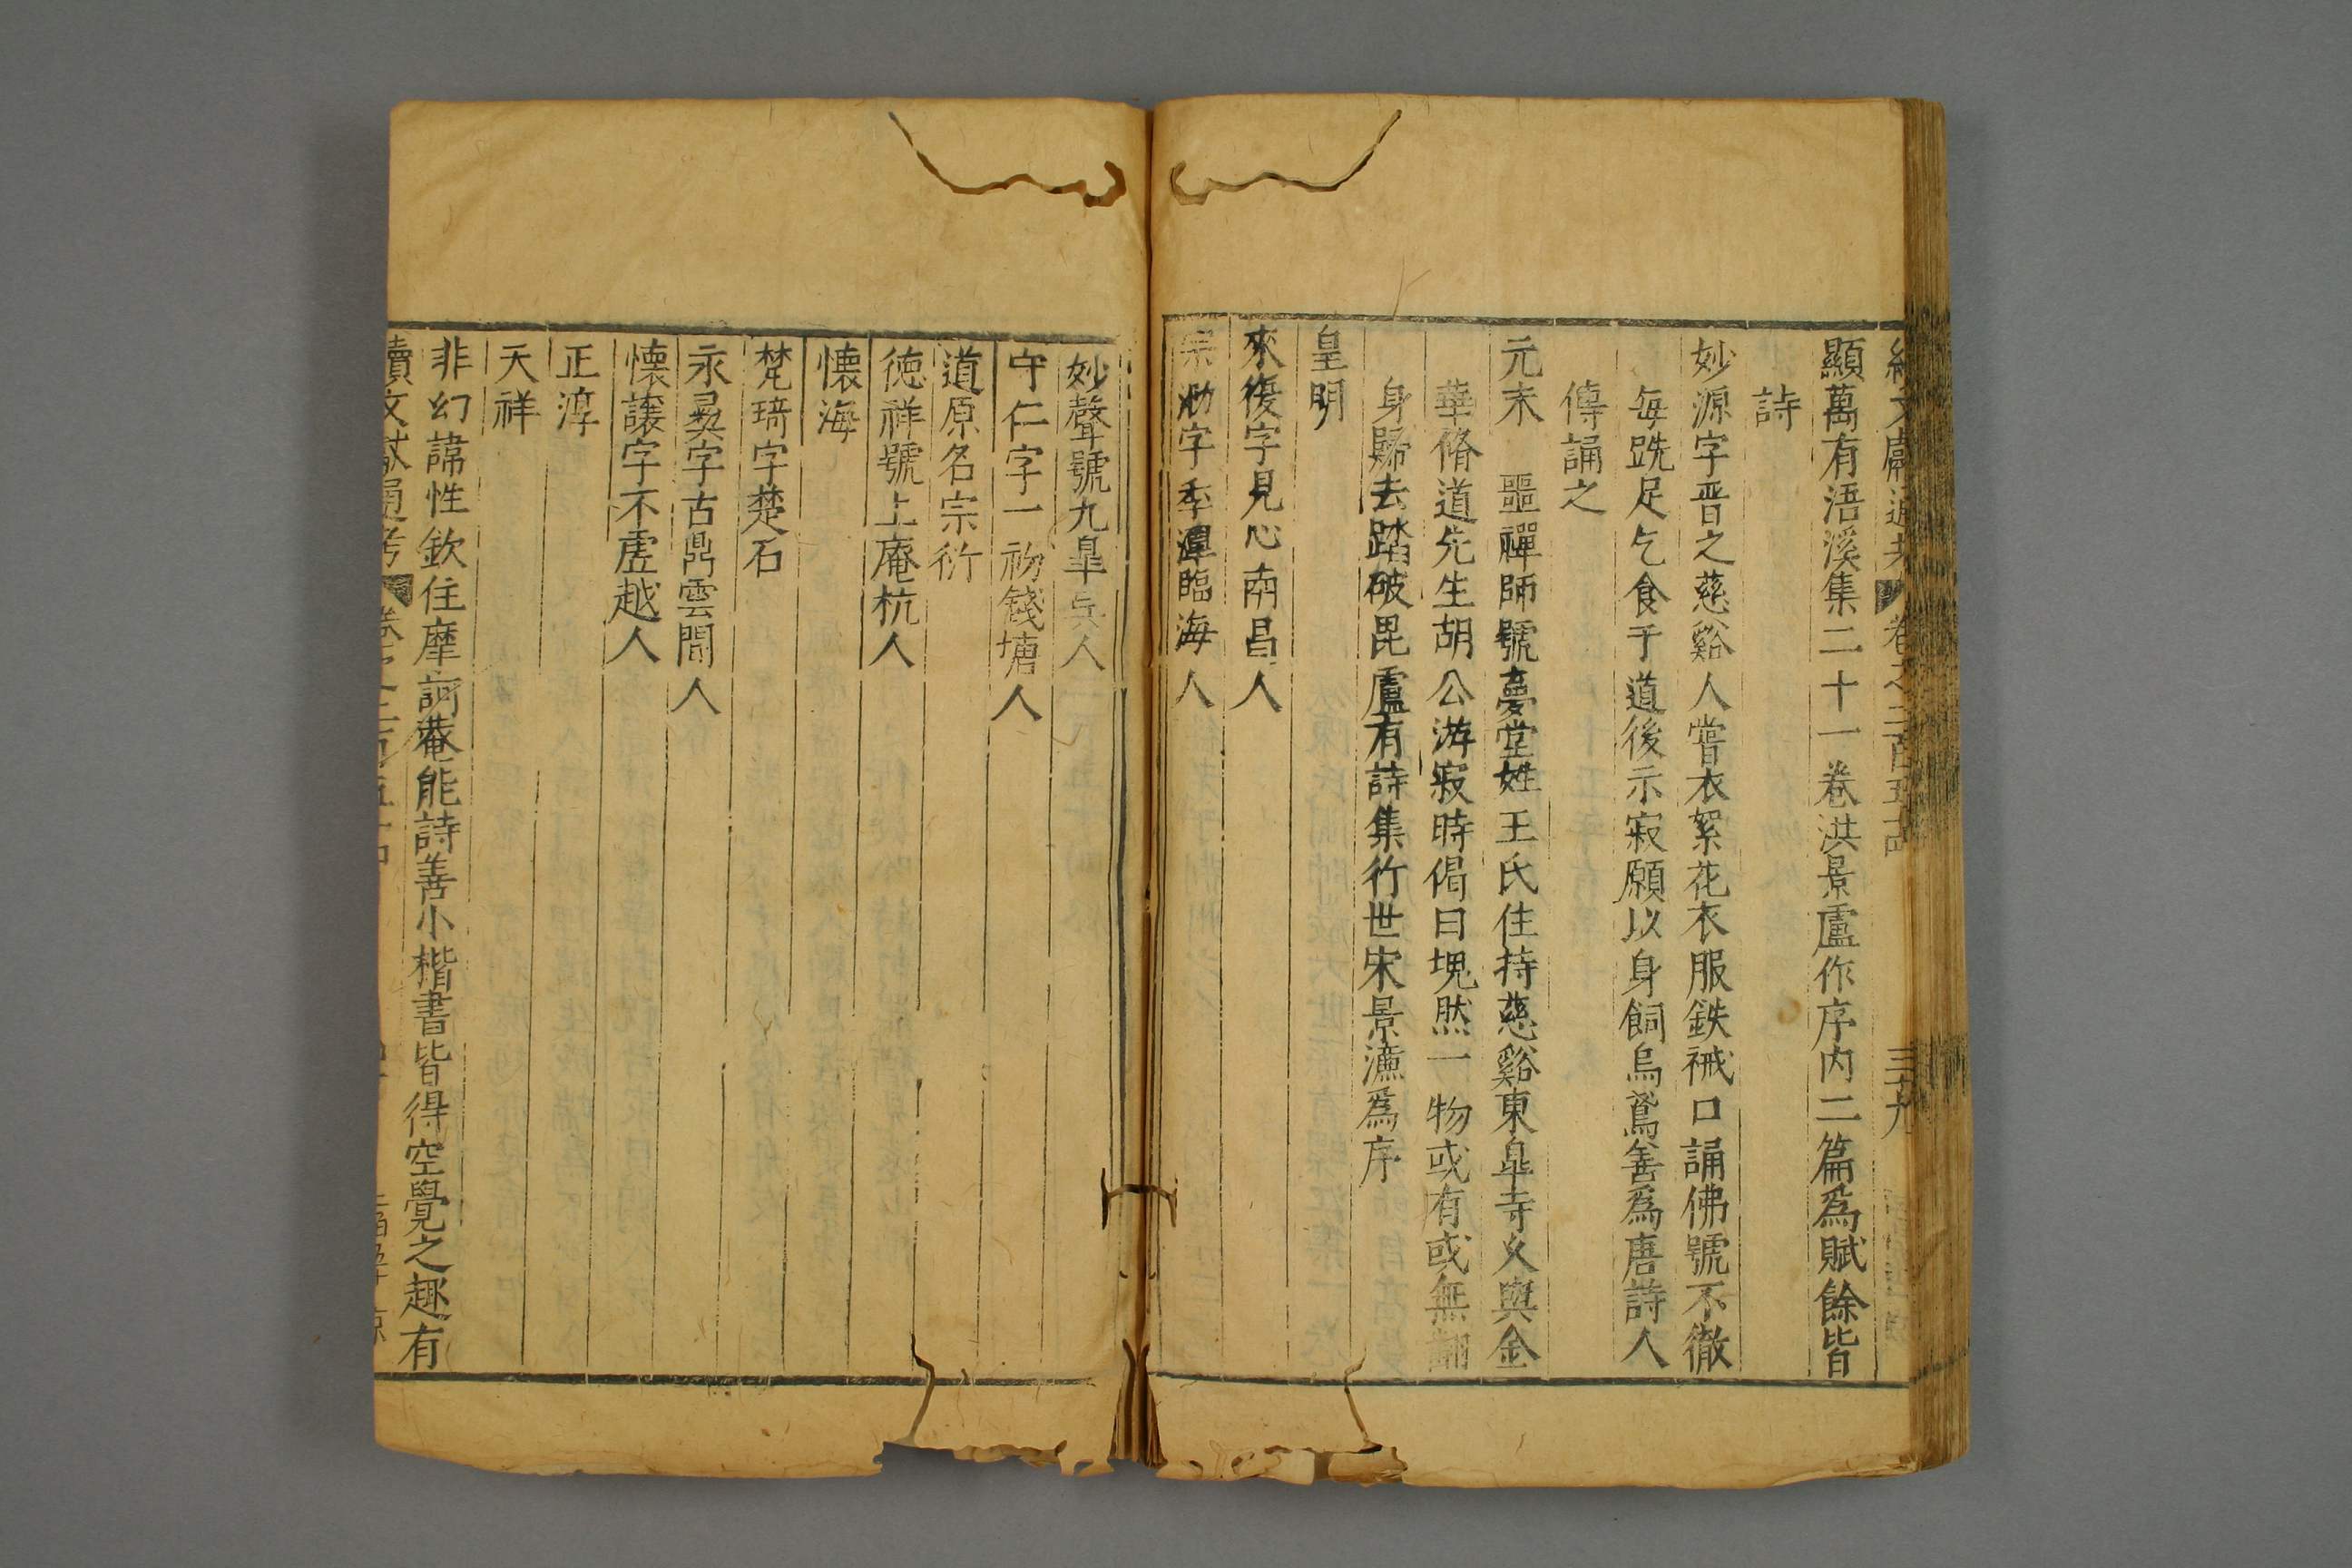 續文獻通考 卷之二百五十四 三九
顯萬有浯溪集二十一巻洪景盧作序内二篇為賦餘皆
詩
妙源字晋之慈谿人嘗衣絮花衣服鉄裓口誦佛號不徹
每跣足乞食于道後示寂願以身飼烏鳶善為唐詩人
傳誦之
元末 噩禪師號夢堂姓王氏住持慈谿東臯寺乂與金
華脩道先生胡公游寂時偈曰塊然一物或有或無翻
身歸去踏破毘盧有詩集行世宋景濂為序
皇明
來復字見心南昌人
宗泐字季潭臨海人
妙聲號九臯吳人
守仁字一初錢塘人
道原名宗衍
徳祥號止庵杭人
懐海
梵琦字楚石
永彛字古鼎雲間人
懐讓字不虗越人
正淳
天祥
非幻諱性欽住摩訶菴能詩善小楷書皆得空覺之趣有
續文獻通考 卷之二百五十四